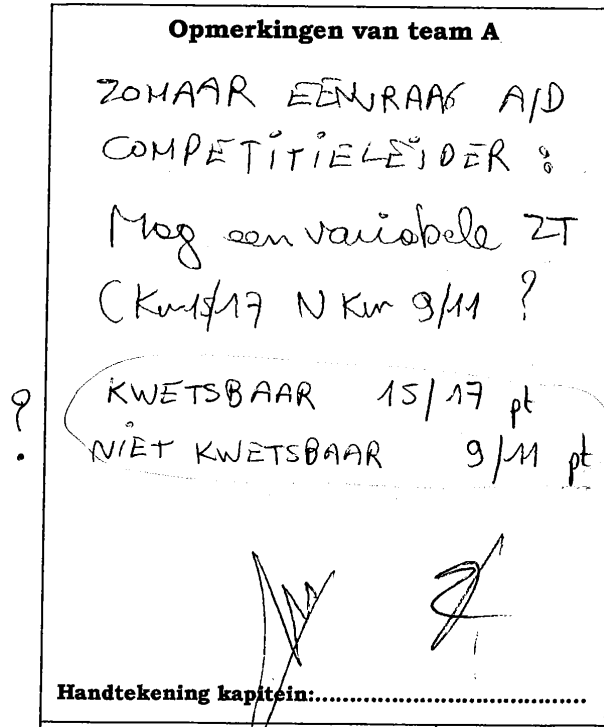 Opmerkingen van team A
ZOMAAR EEN VRAAG A/D
COMPETITIELEIDER :
Mag een variabele ZT
(Kw 15/17 N Kw 9/11 ?
? KWETSBAAR 15/17 pt
NIET KWETSBAAR 9/11 pt
Handtekening kapitein:......................................